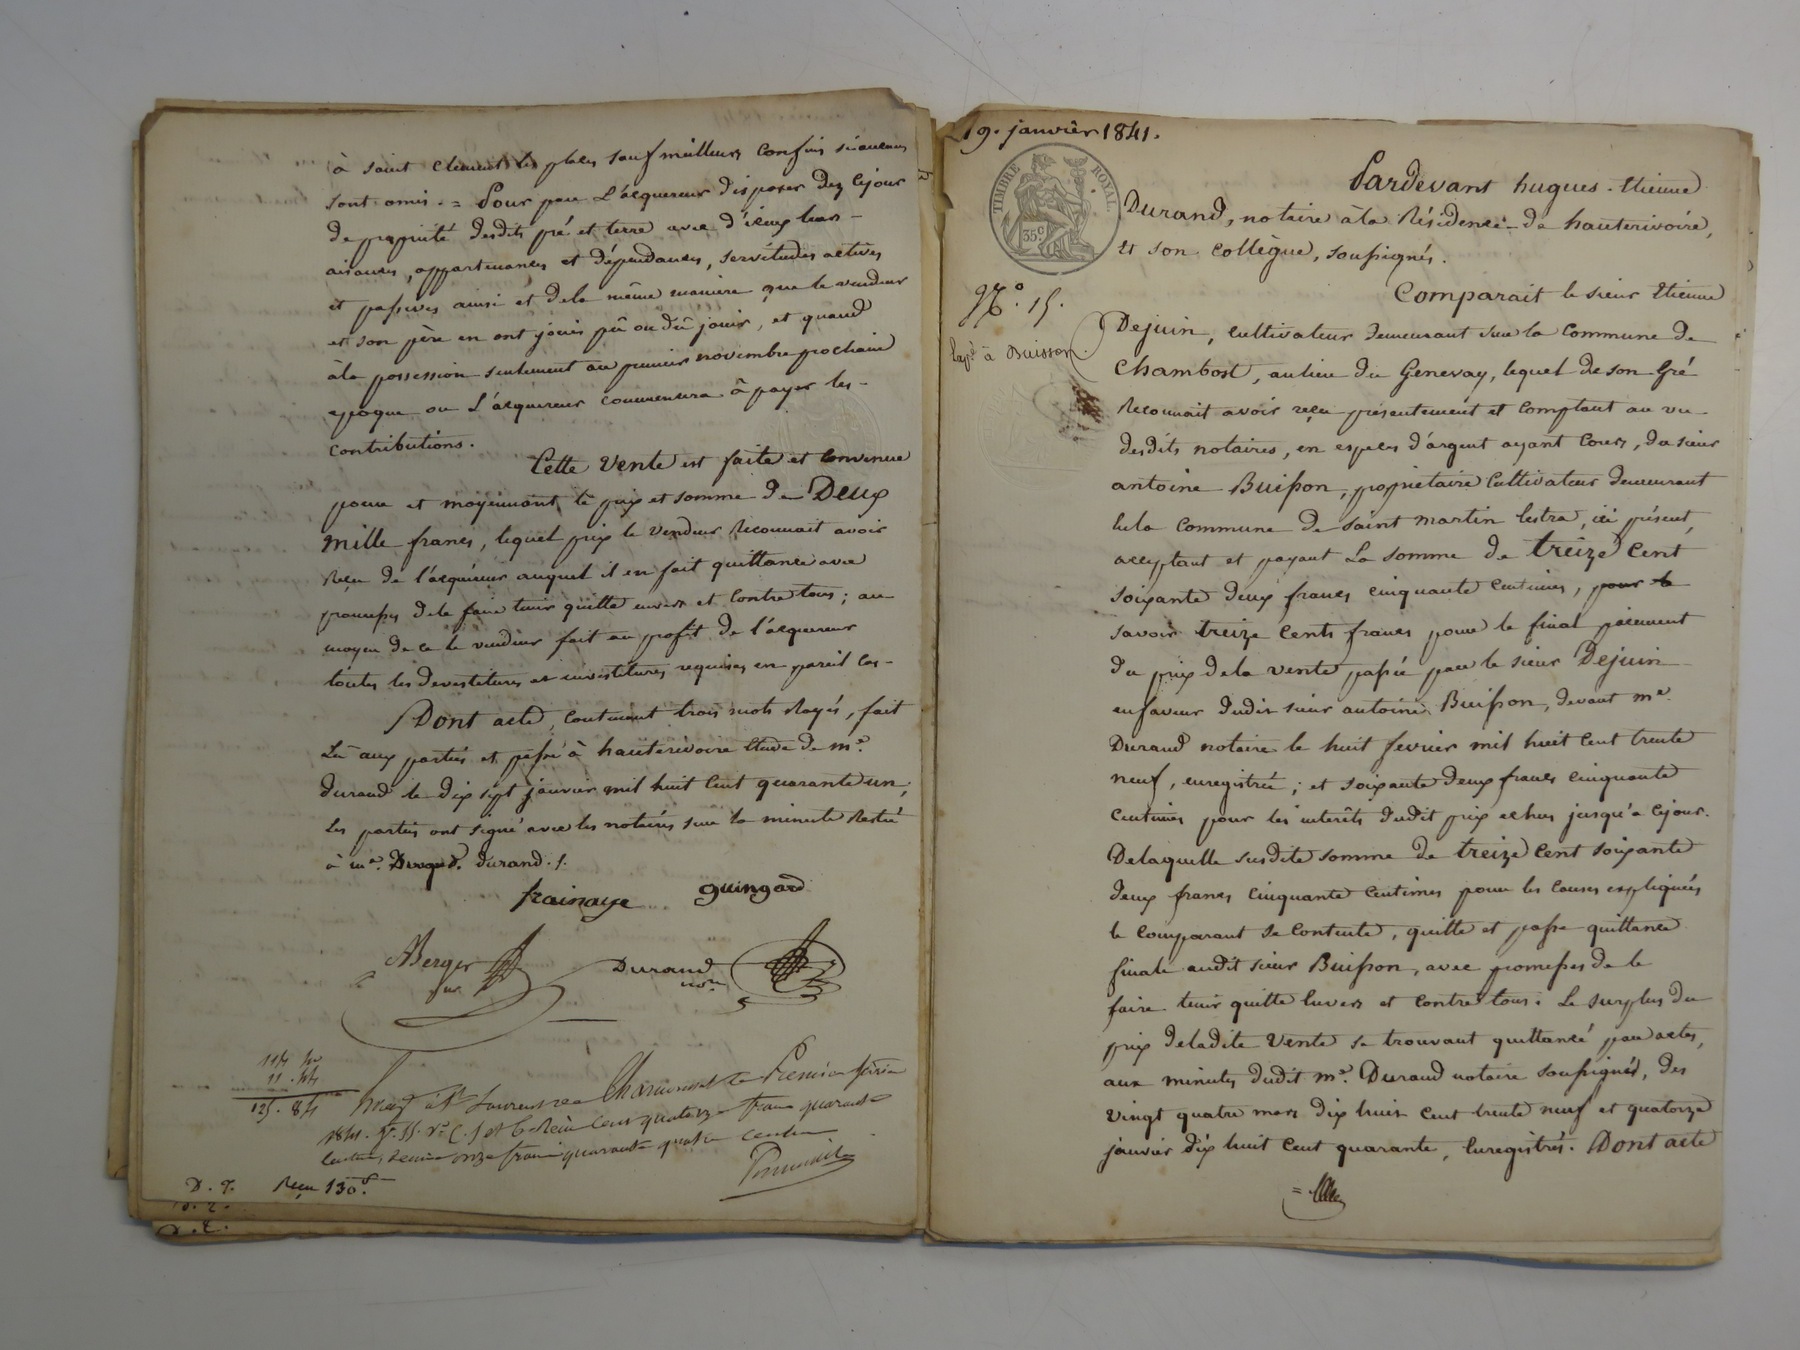 à saint Clément les places sauf meilleurs confins si aucuns
sont omis. = Pour par L'acquereur disposer dez cejour
de propriété desdits pré et terre avec d'iceux leurs
aisances, appartenances et dépendances, servitudes actives
et passives ainsi et dela même manière que le vendeur
et son père en ont jouis pû ou dû jouir, et quand
àla possession seulement au premier novembre prochain
epoque ou L'acquereur commencera à payer les
contributions.
Cette Vente est faite et convenue
pour et moyennant le prix et somme de Deux
mille francs, lequel prix le Vendeur Reconnait avoir
Reçu de l'acquéreur auquel il en fait quittance avec
promesses dele faire tenir quitte envers et contre tous; au
moyen de ce le vendeur fait au profit de l'acquereur
toutes les devestitures et investitures requises en pareil cas.
Dont acte, contenant trois mots Rayés, fait
Lu aux parties et passé à hauterivoire Etude de me.
durand le dix sept janvier mil huit cent quarante un,
Les parties ont signé avec les notaires sur la minute Restée
à me. durand.
frainaye guingard
Berger
Durand
nore
11.44
125.84
Premier février
1841. cent quatorze francs quarante
centimes, decime onze francs quarante quatre centimes
D. T. Reçu 130f.
19. janvièr 1841.
TIMBRE ROYAL
35c
Pardevant hugues-Etienne
Durand, notaire àla Résidence de hauterivoire,
Et son collègue, soussignés.
No. 15.
Comparait le sieur Etienne
à Buisson.
Dejuin, cultivateur demeurant sur la commune de
Chambost, au lieu du Genevay, lequel de son Gré
Reconnait avoir reçu présentement et comptant au vu
desdits notaires, en espèces d'argent ayant cours, du sieur
antoine Buisson, propriétaire Cultivateur demeurant
en la commune de saint martin lestra, ici présent,
acceptant et payant La somme de treize Cent
soixante deux francs cinquante centimes, pour le
savoir treize Cents francs pour le final paiement
du prix dela vente passée par le sieur Dejuin
enfaveur dudit sieur antoine Buisson, devant me.
Durand notaire le huit fevrier mil huit cent trente
neuf, enregistrée; et soixante deux francs cinquante
centimes pour les intérêts dudit prix echus jusqu'a cejour.
Delaquelle susdite somme de treize cent soixante
deux francs cinquante centimes pour les causes expliquées
le comparant se Contente, quitte et passe quittance
finale audit sieur Buisson, avec promesses de le
faire tenir quitte Envers et contre tous. Le surplus du
prix deladite Vente se trouvant quittancé par actes,
aux minutes dudit me. Durand notaire soussigné, des
vingt quatre mars dix huit cent trente neuf et quatorze
janvier dix huit cent quarante, Enregistrés. Dont acte